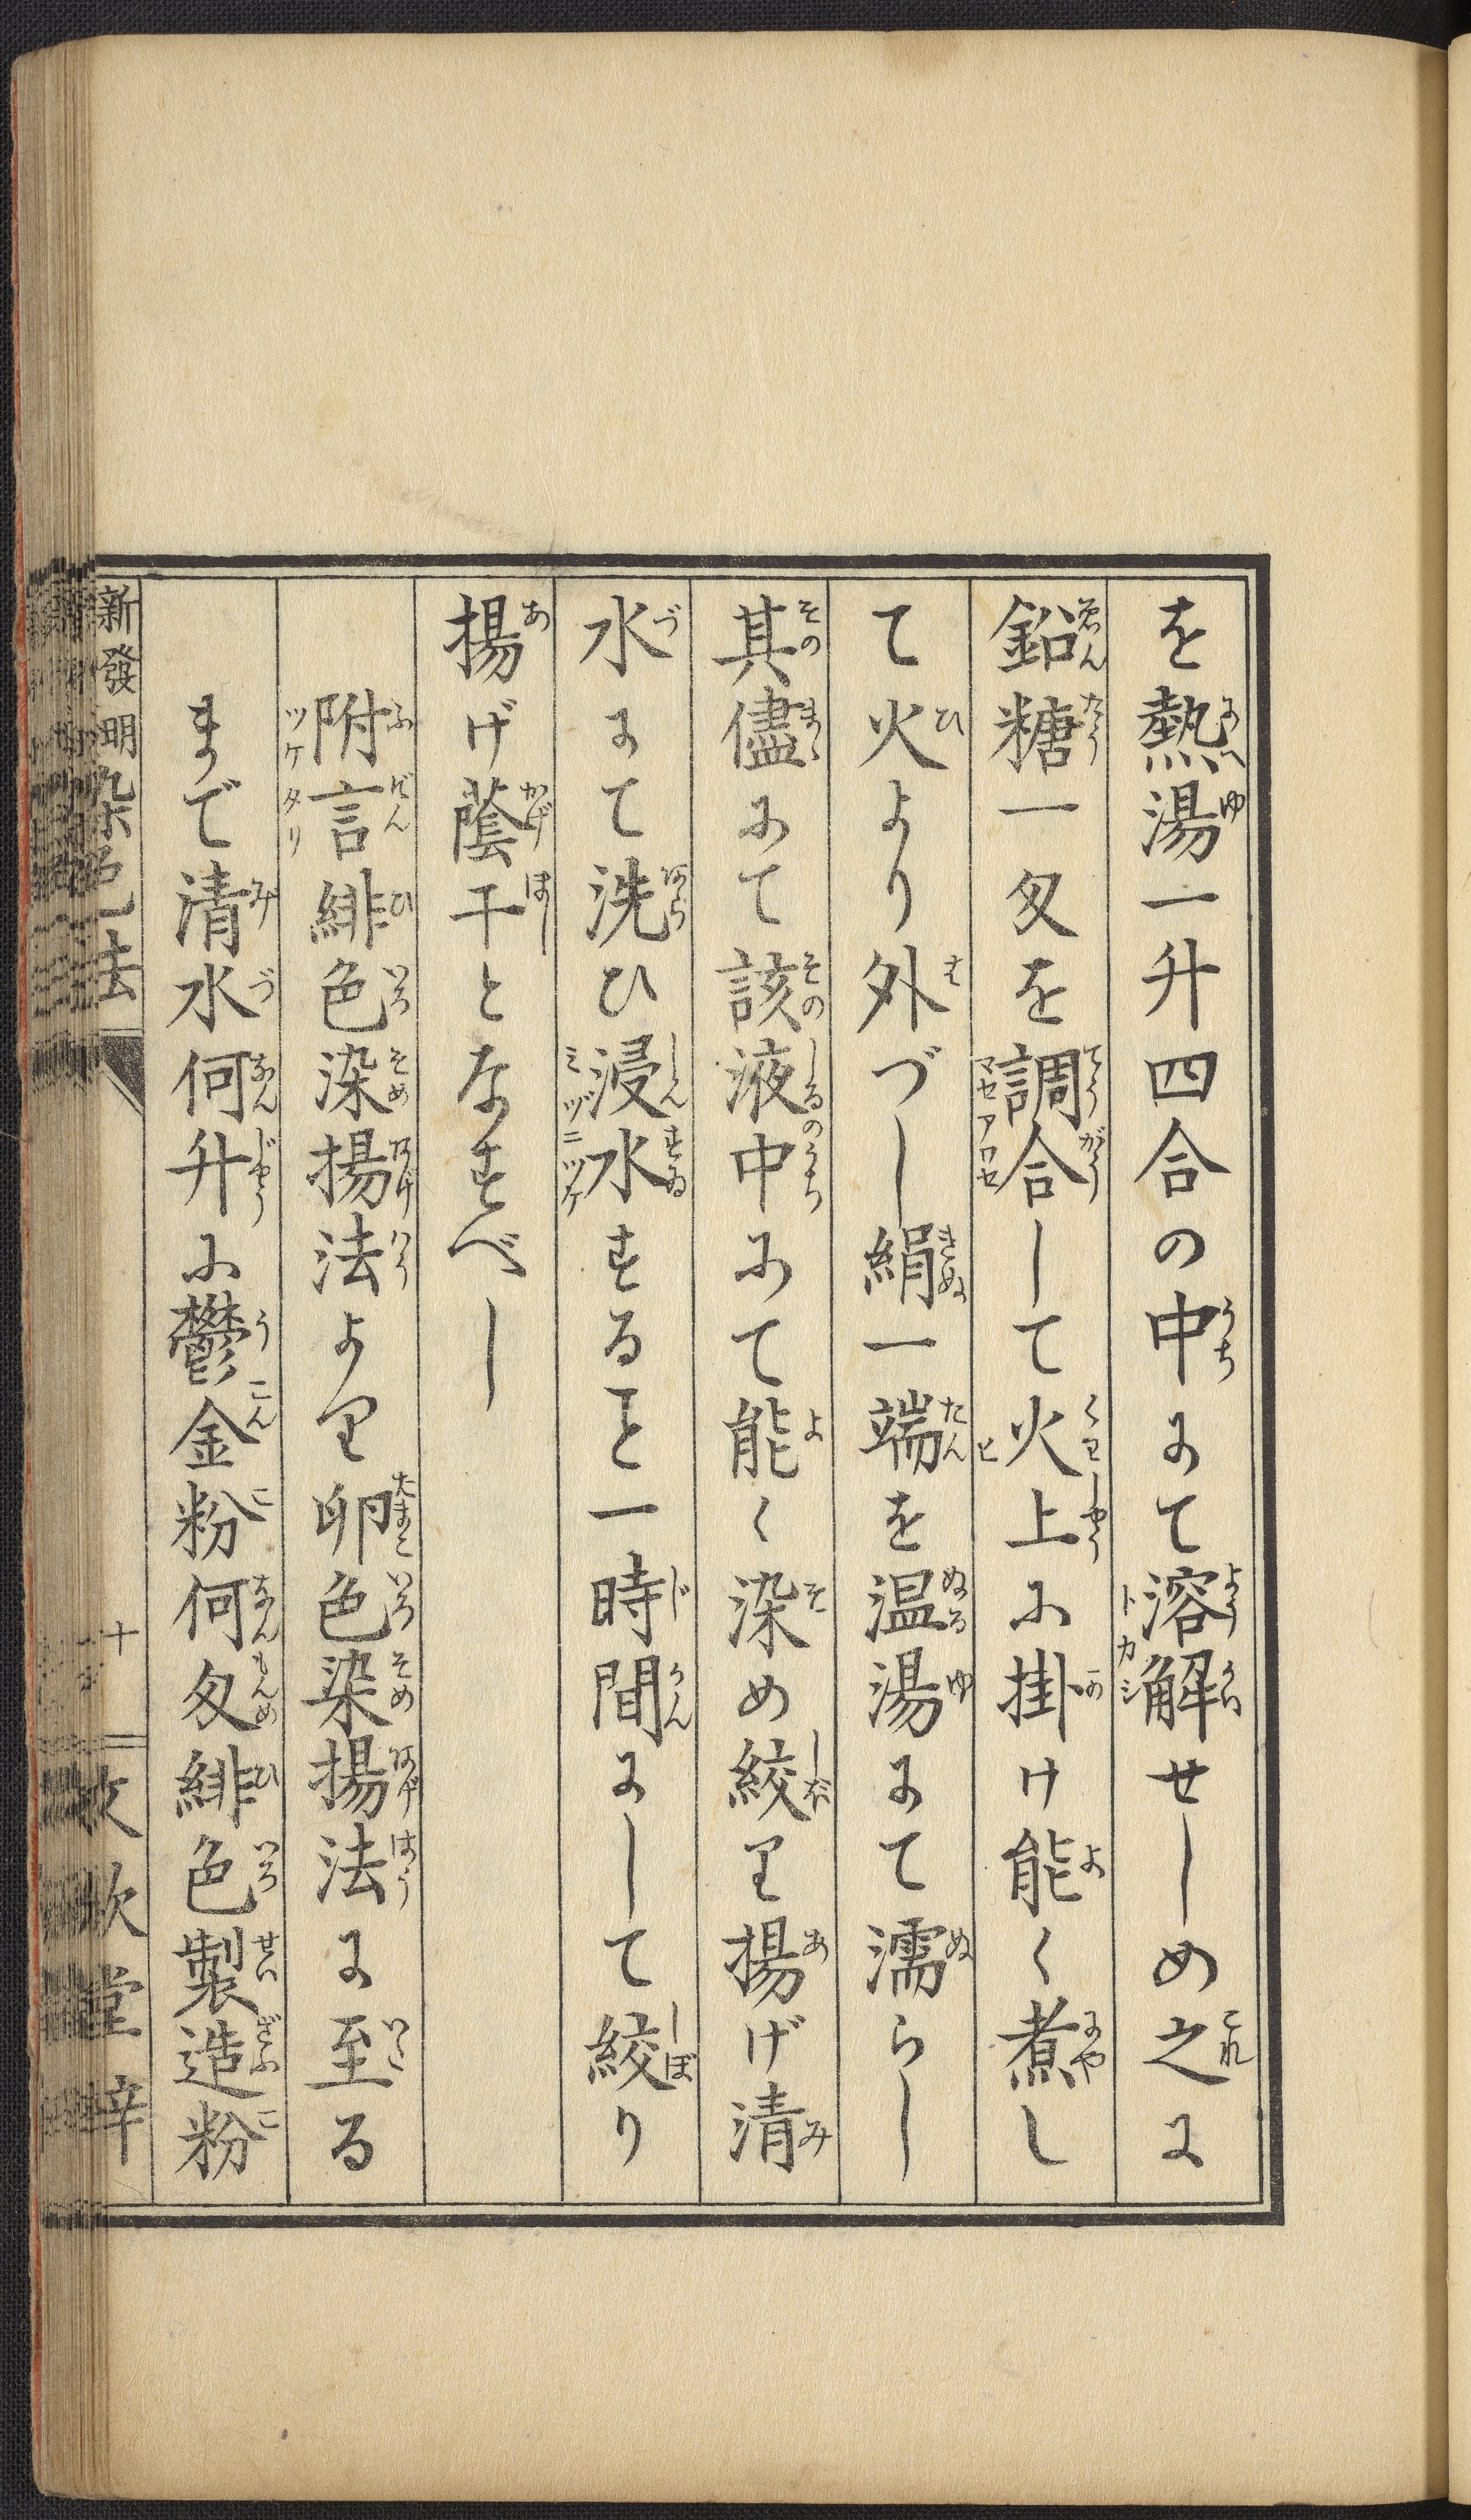 を熱湯一升四合の中にて溶解せしめ之に
鉛糖一匁を調合して火上に掛け能く煮し
て火より外づし絹一端を温湯にて濡らし
其儘にて該液中にて能く染め絞り揚げ清
水にて洗ひ浸水すること一時間にして絞り
揚げ蔭干となすべし
附言緋色染揚法より卵色染揚法に至る
まで清水何升に鬱金粉何匁緋色製造粉
新發明染色法
十
文欽堂梓